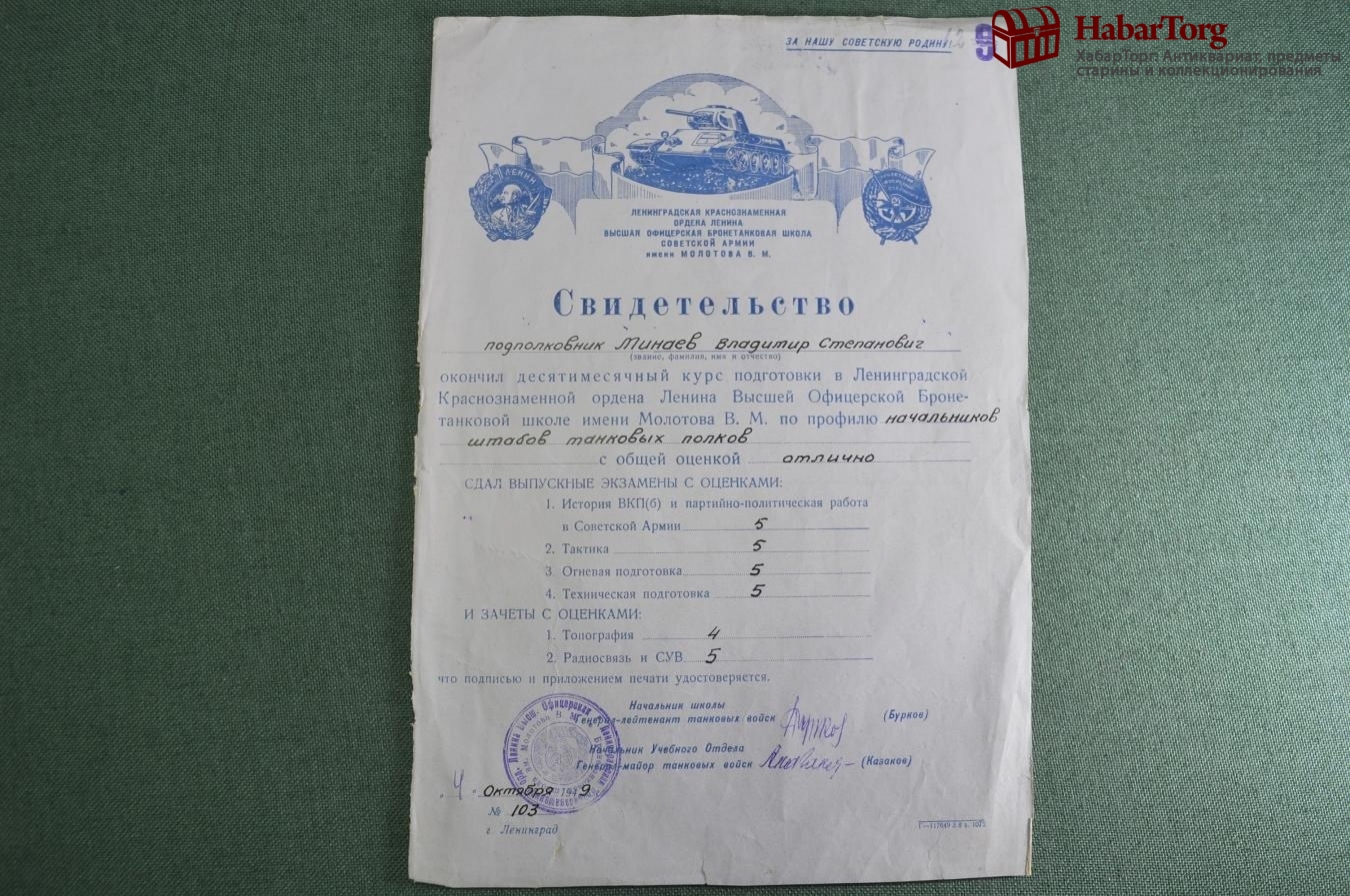 HabarTorg
ХабарТорг: Антиквариат, предметы
старины и коллекционирования
ЗА НАШУ СОВЕТСКУЮ РОДИНУ!
9
ЛЕНИН
ЛЕНИНГРАДСКАЯ КРАСНОЗНАМЕННАЯ
ОРДЕНА ЛЕНИНА
ВЫСШАЯ ОФИЦЕРСКАЯ БРОНЕТАНКОВАЯ ШКОЛА
СОВЕТСКОЙ АРМИИ
имени МОЛОТОВА В. М.
Свидетельство
подполковник Минаев Владимир Степанович
(звание, фамилия, имя и отчество)
окончил десятимесячный курс подготовки в Ленинградской
Краснознаменной ордена Ленина Высшей Офицерской Броне-
танковой школе имени Молотова В. М. по профилю начальников
штабов танковых полков
с общей оценкой отлично
СДАЛ ВЫПУСКНЫЕ ЭКЗАМЕНЫ С ОЦЕНКАМИ:
1. История ВКП(б) и партийно-политическая работа
в Советской Армии 5
2. Тактика 5
3. Огневая подготовка 5
4. Техническая подготовка 5
И ЗАЧЕТЫ С ОЦЕНКАМИ:
1. Топография 4
2. Радиосвязь и СУВ 5
что подписью и приложением печати удостоверяется.
Начальник школы
Генерал-лейтенант танковых войск (Бурков)
Начальник Учебного Отдела
Генерал-майор танковых войск (Казаков)
4 Октября 1949 г.
№ 103
г. Ленинград